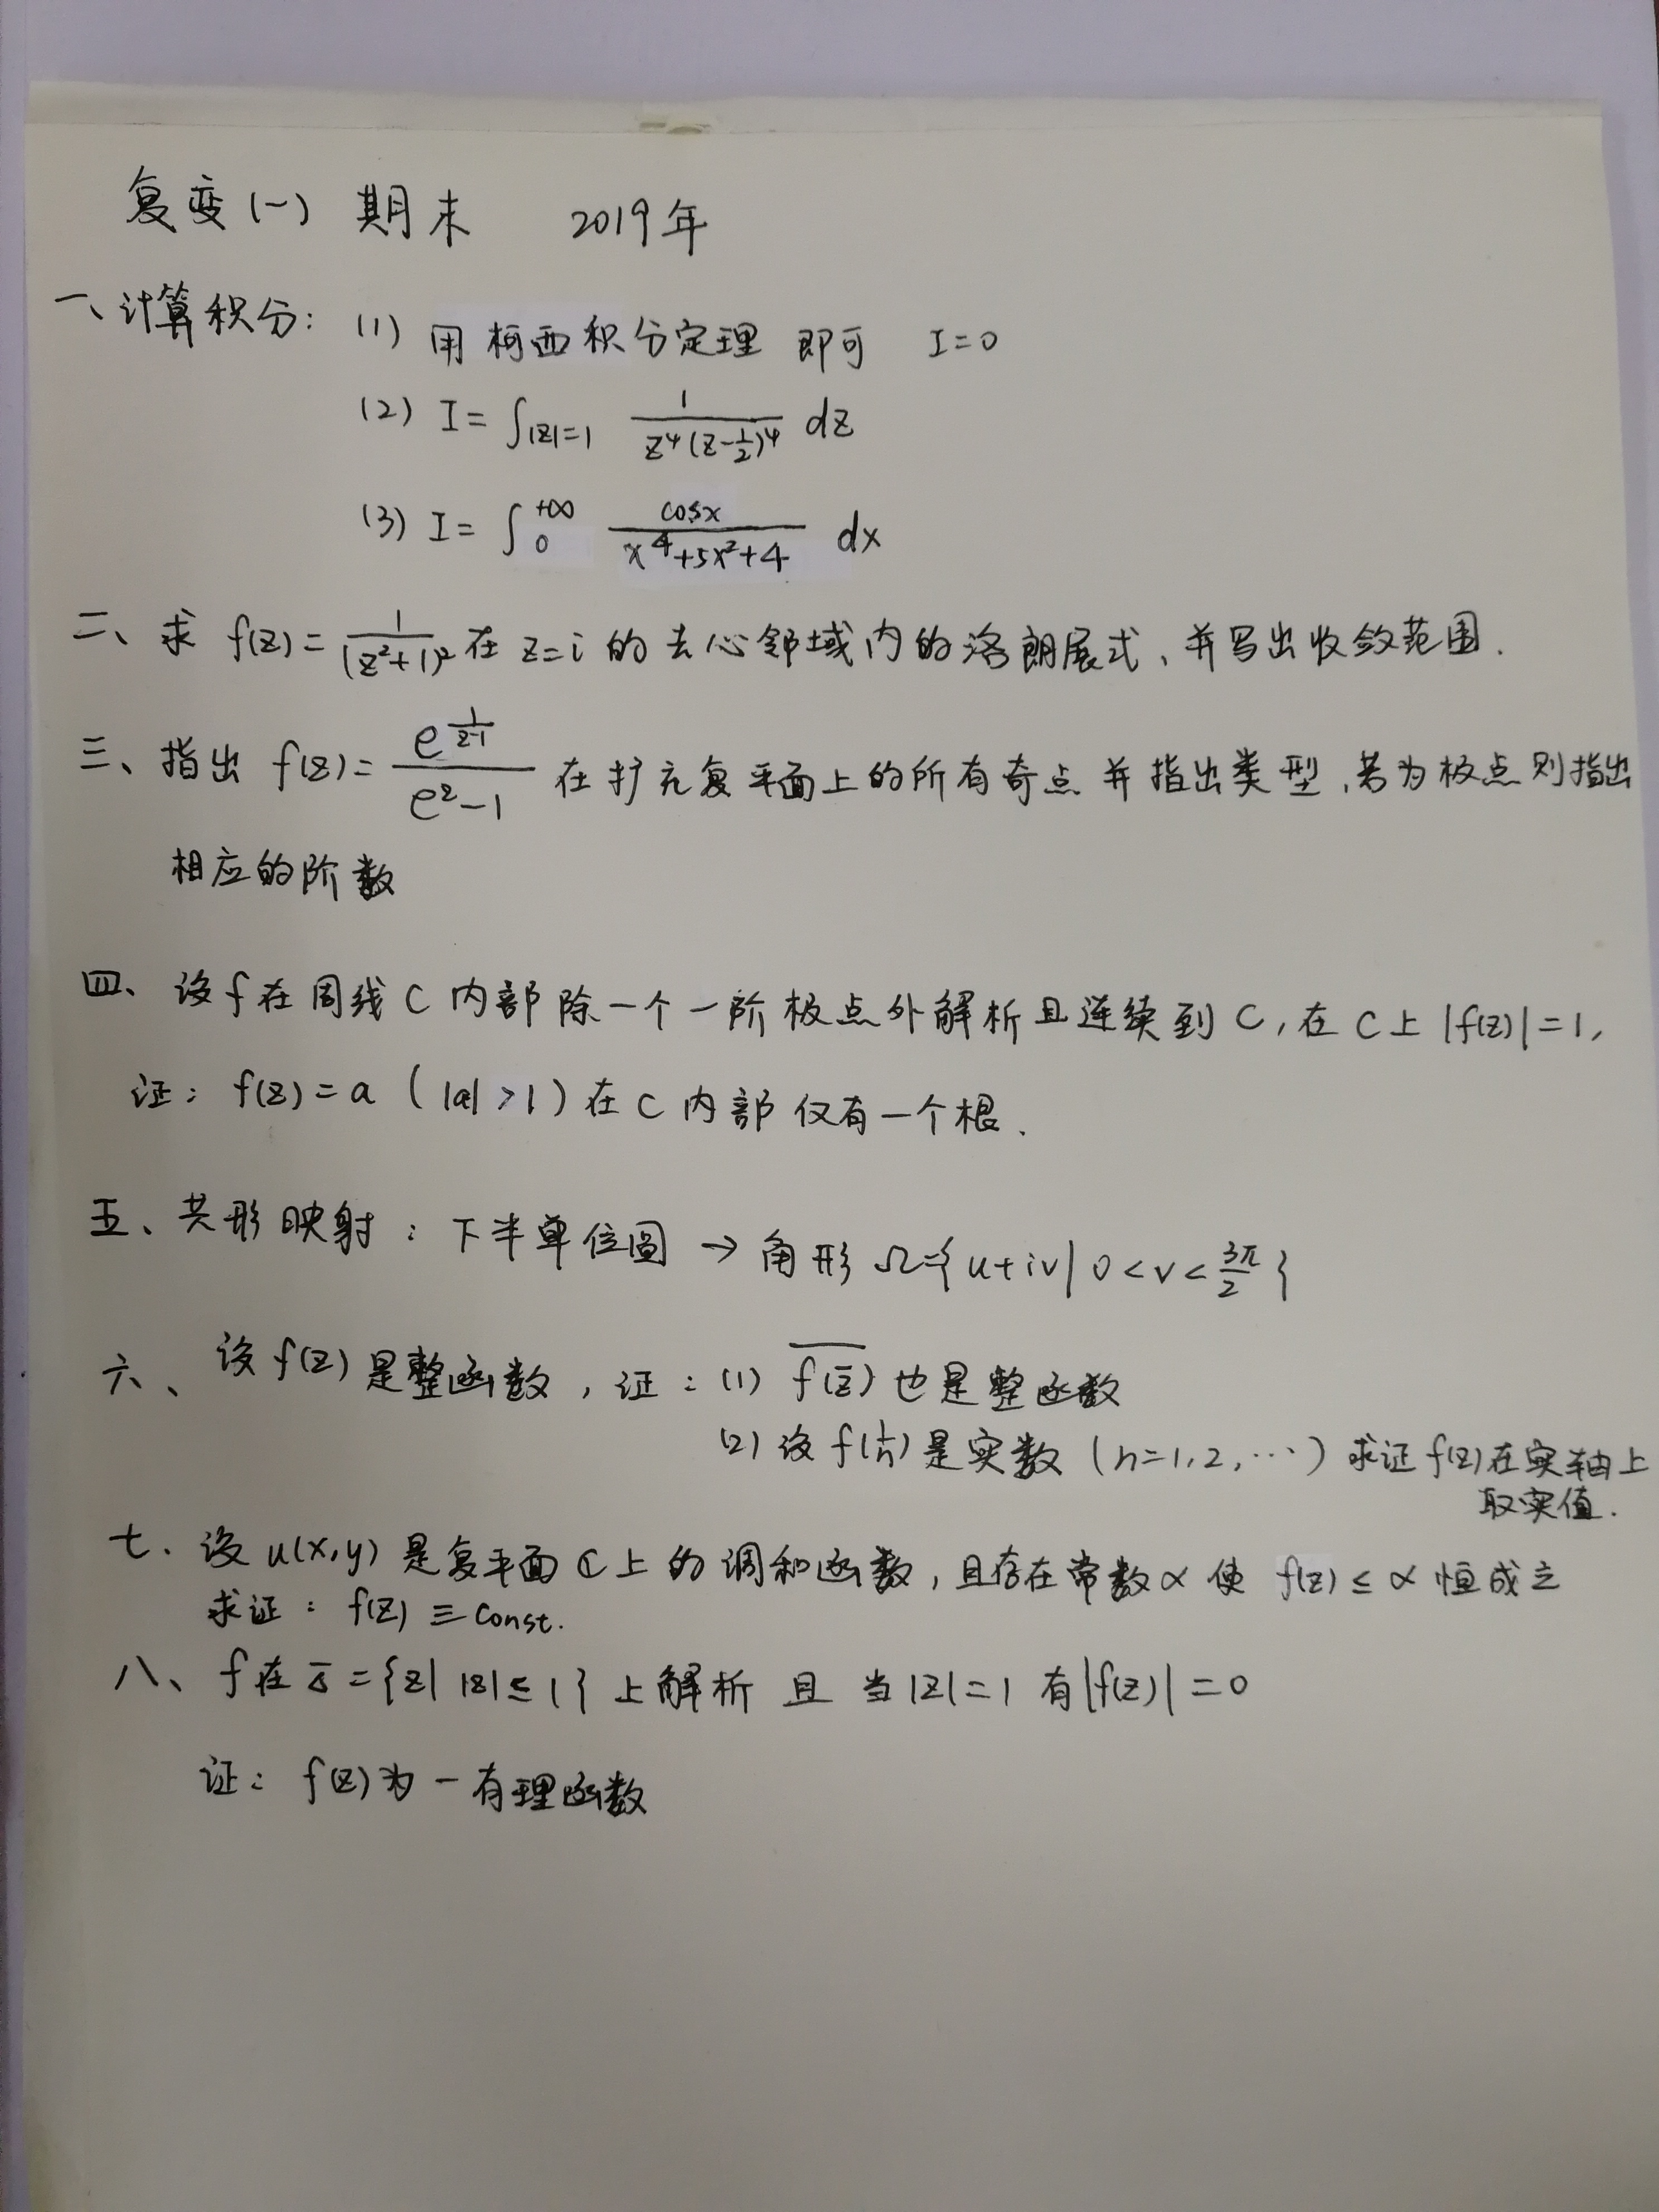 复变(一) 期末 2019年
一、计算积分: (1) 用柯西积分定理 即可 I=0
(2) I = ∫|z|=1 1/(z⁴(z-1/2)⁴) dz
(3) I = ∫0^{+∞} cosx/(x⁴+5x²+4) dx
二、求 f(z) = 1/(z²+1)² 在 z=i 的去心邻域内的洛朗展式、并写出收敛范围.
三、指出 f(z) = e^{1/(z-1)}/(e^z-1) 在扩充复平面上的所有奇点并指出类型,若为极点则指出
相应的阶数
四、设f在周线C内部除一个一阶极点外解析且连续到C,在C上|f(z)|=1,
证: f(z)=a (|a|>1)在C内部仅有一个根.
五、共形映射: 下半单位圆 → 角形 Ω={u+iv| 0<v<3π/2}
六、设f(z)是整函数,证: (1) \overline{f(\bar{z})} 也是整函数
(2) 设f(1/n)是实数 (n=1,2,…) 求证f(z)在实轴上
取实值.
七.设u(x,y)是复平面ℂ上的调和函数,且存在常数α使 f(z)≤α恒成立
求证: f(z)≡const.
八、f在 = {z| |z|≤1} 上解析 且 当|z|=1 有|f(z)|=0
证: f(z)为一有理函数